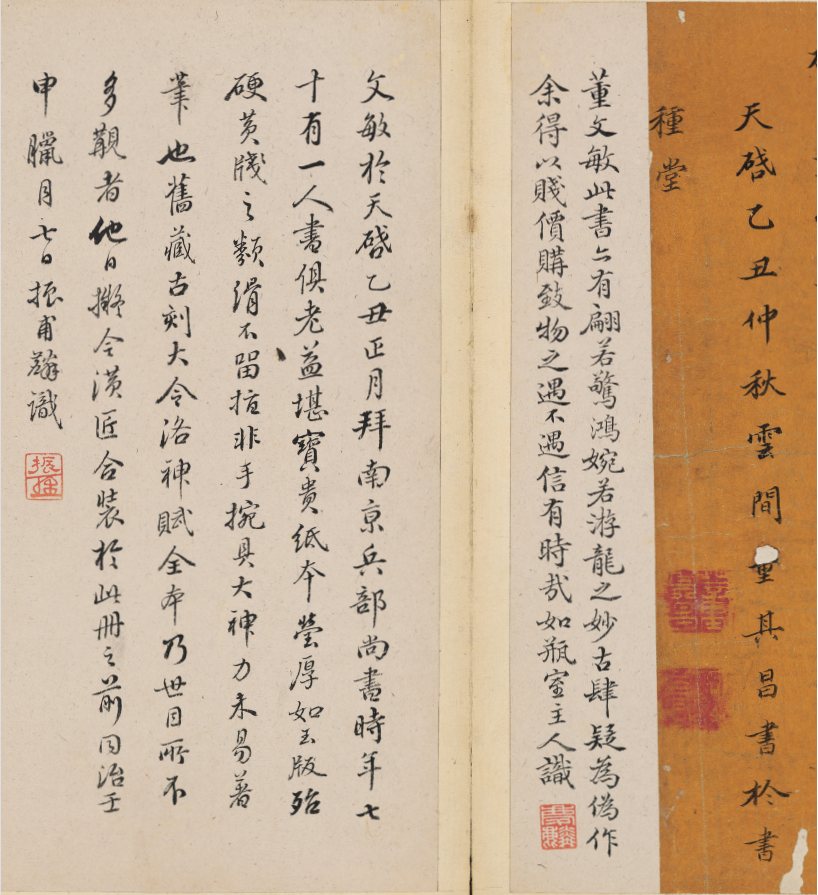 天啓乙丑仲秋雲間董其昌書於書
種堂
董文敏此書亦有翩若驚鴻婉若游龍之妙古肆疑為偽作
余得以賤價購致物之遇不遇信有時哉如瓶室主人識
文敏於天啓乙丑正月拜南京兵部尚書時年七
十有一人書俱老益堪寶貴紙本瑩厚如玉版殆
硬黄牋之類滑不留指非手捥具大神力未易著
筆也舊藏古刻大令洛神賦全本乃世目所不
多覯者他日擬令潢匠合裝於此冊之前同治壬
申臘月七日振甫識